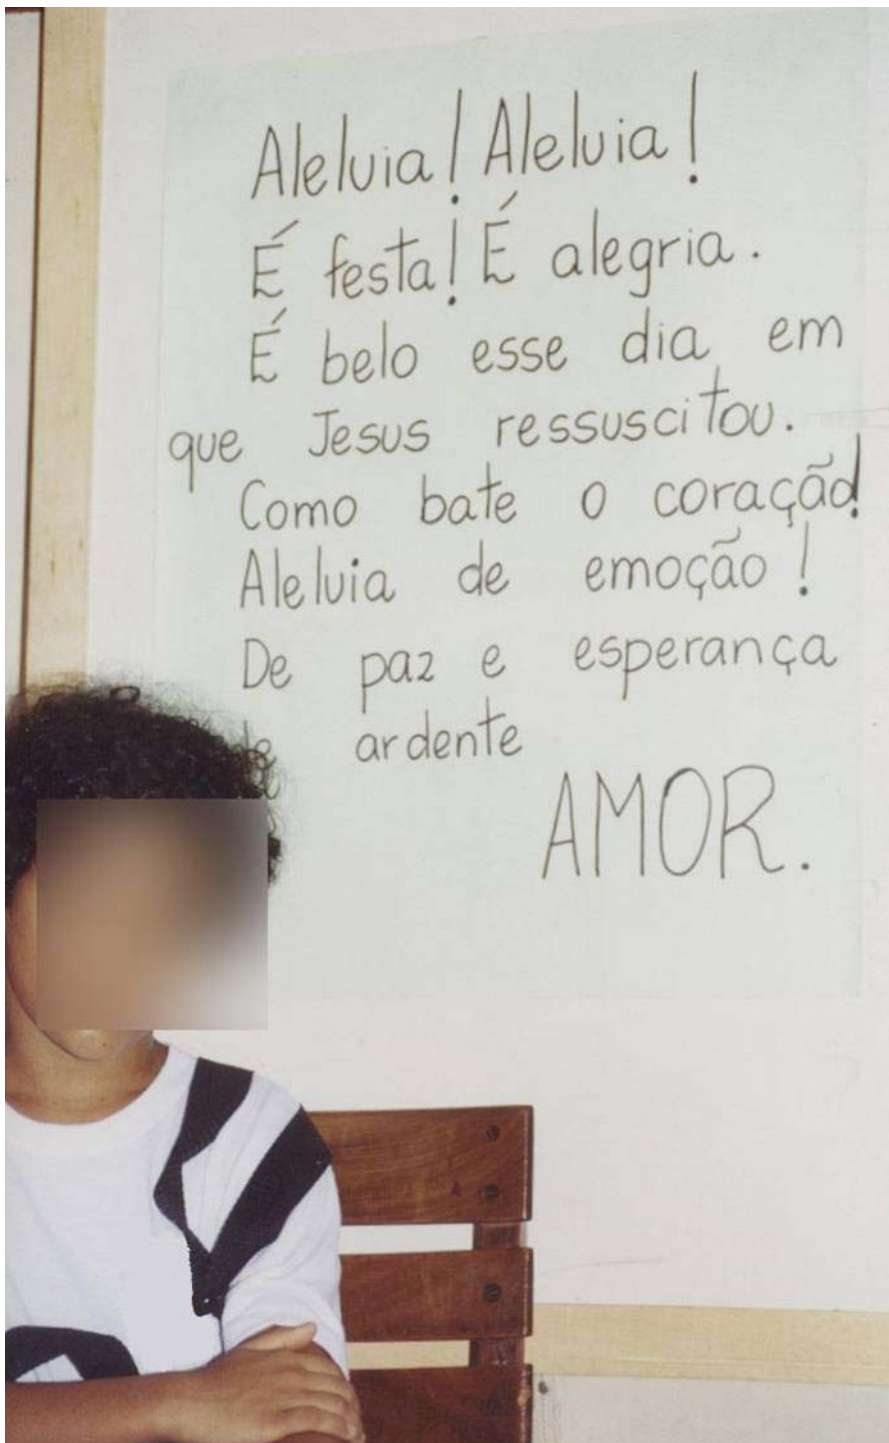 Aleluia! Aleluia!
É festa! É alegria.
É belo esse dia em
que Jesus ressuscitou.
Como bate o coração!
Aleluia de emoção!
De paz e esperança
ardente
AMOR.